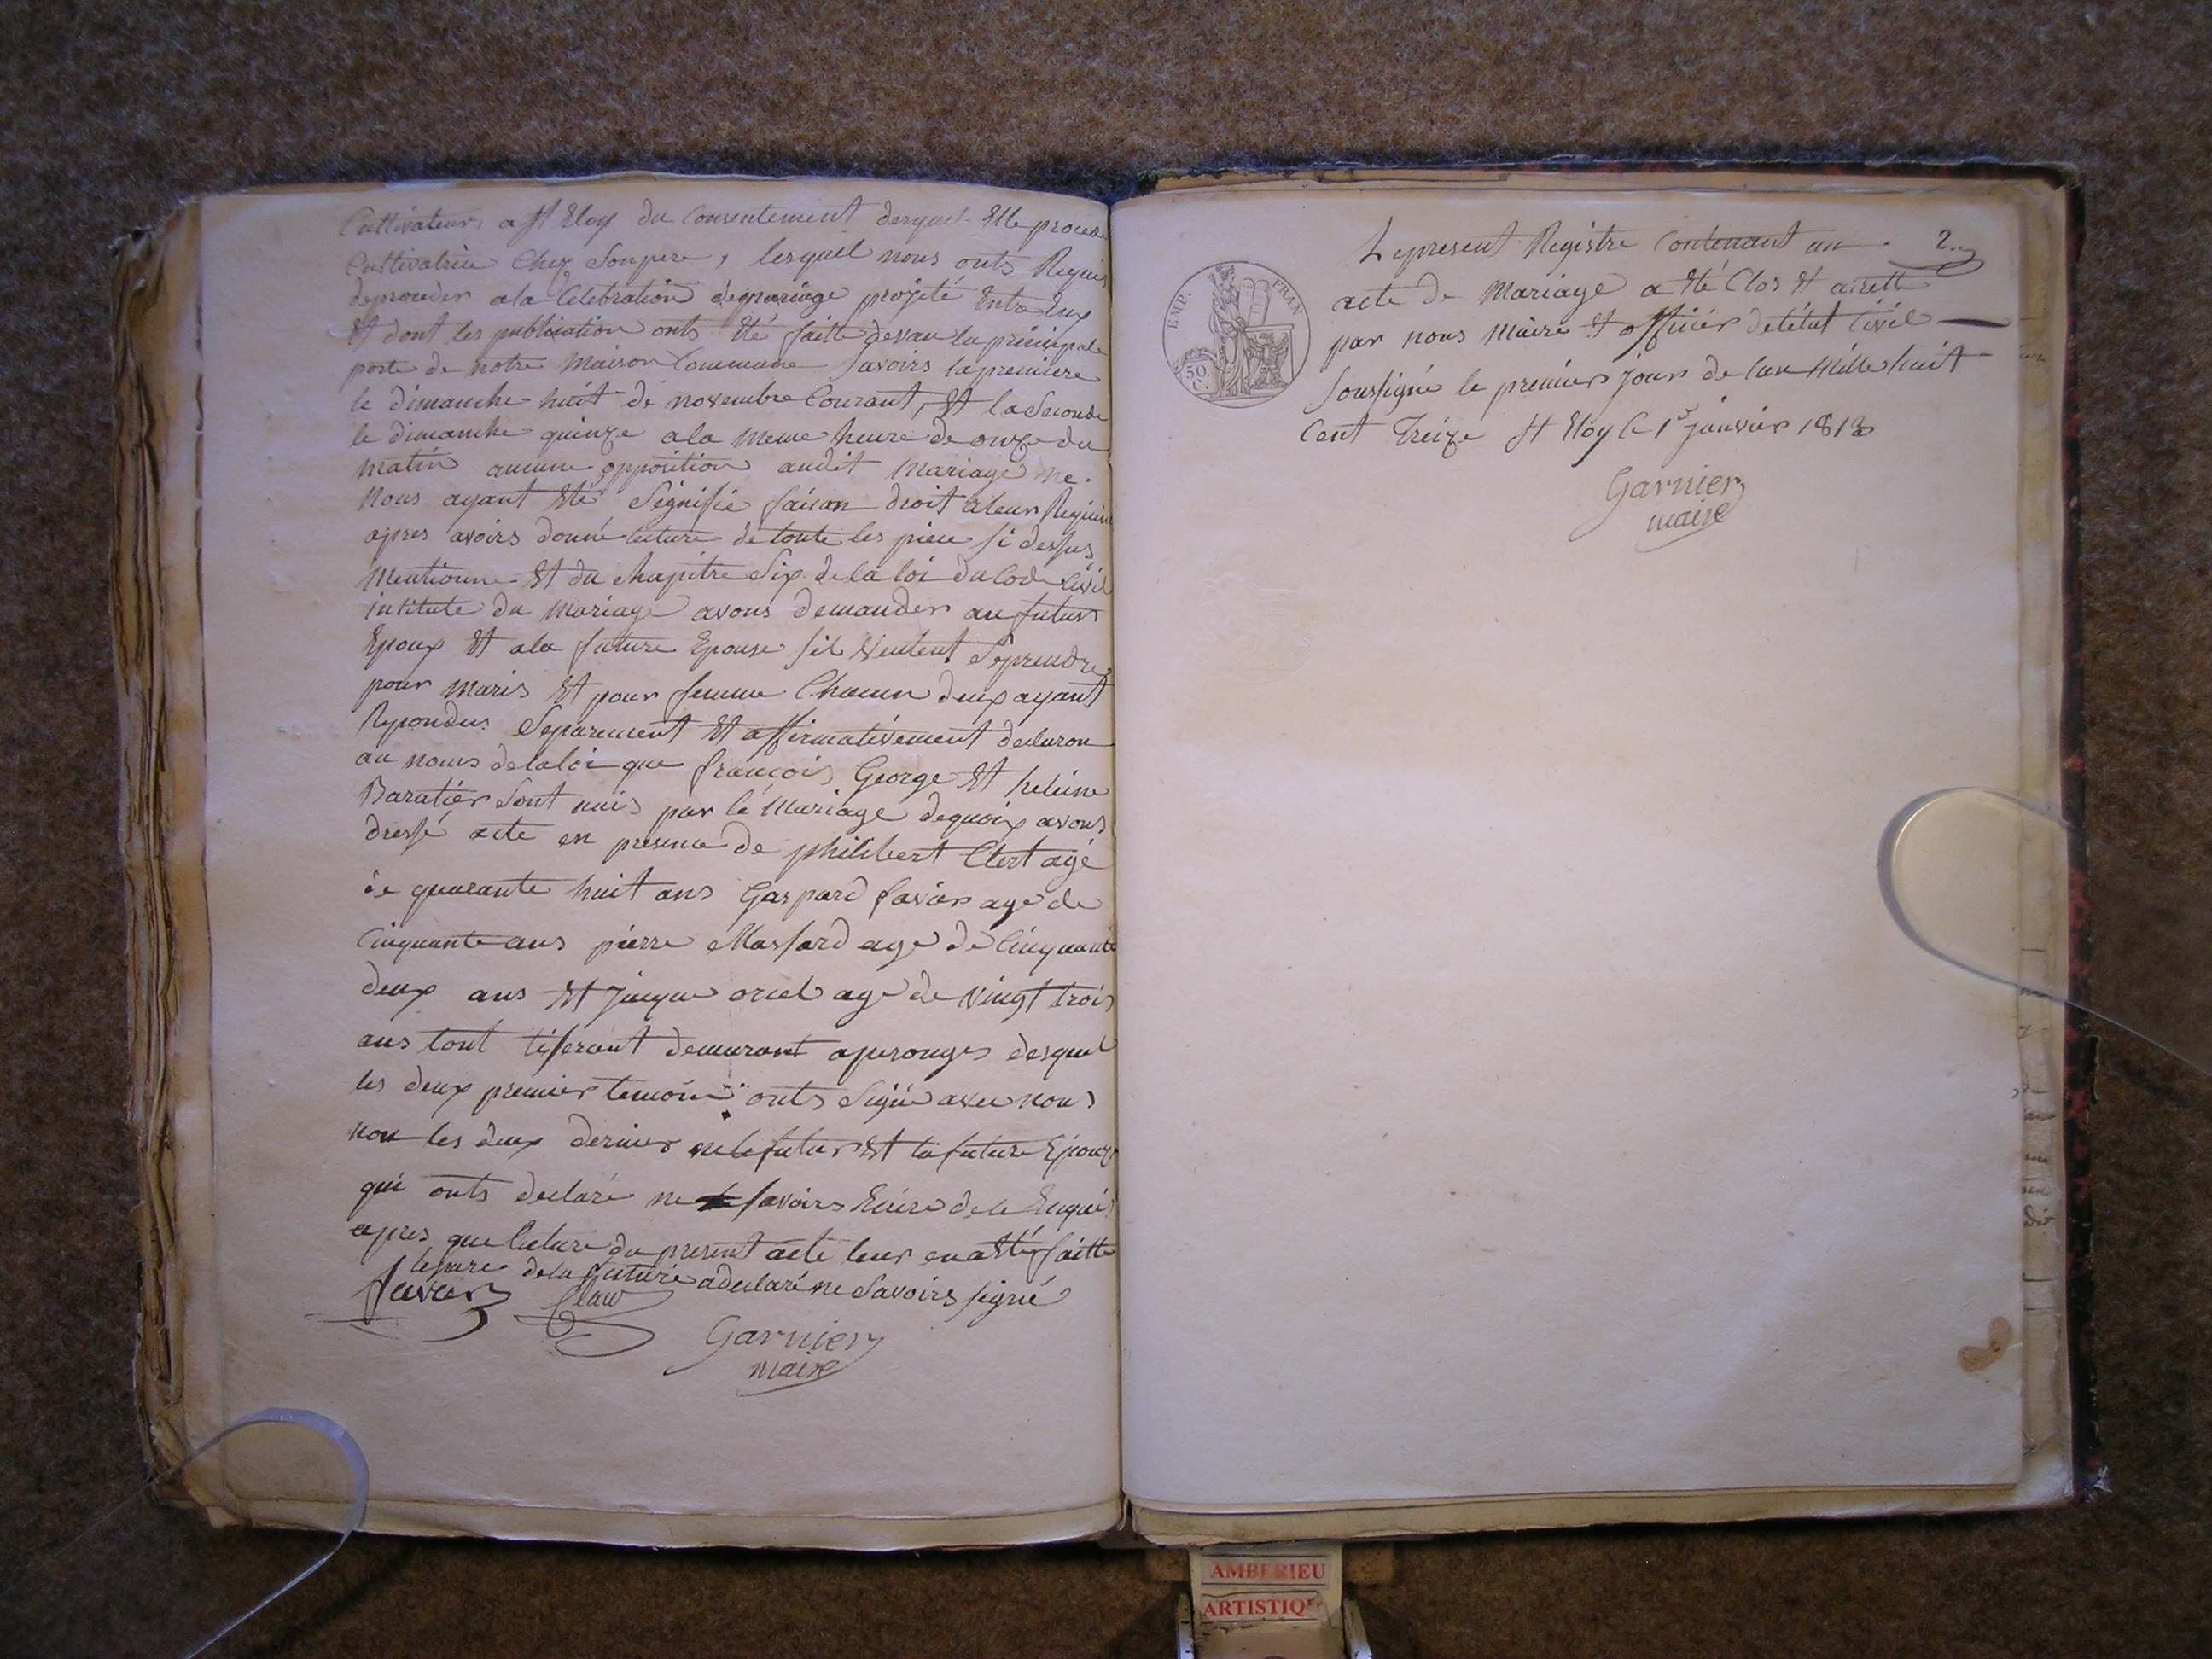 Cultivateur, a St Eloy du Consentement duquel Elle procede
Cultivatrice Chez Sonpere, lesquel nous onts Requis
deproceder ala Celebration demariage projeté Entre Eux
Et dont les publication onts Eté faitte devan la principale
porte de notre Maison Commune Savoirs lapremiere
le dimanche huit de novembre Courant, Et la Seconde
le dimanche quinze ala meme heure de onze du
matin aucune opposition audit mariage ne.
Nous ayant Eté Signifié faisan droit aleur
apres avoirs donné lecture de toute les piece si dessus
Mentionne Et du chapitre Six de la loi du Code Civil
intitule du Mariage avons demander au futurs
Epoux Et ala future Epouse sil veulent Seprendre
pour maris Et pour femme Chacun deux ayant
Repondus Separement Et affirmativement declaron
au noms delaloi que françois George Et heleine
Baratier Sont unis par le Mariage dequoix avons
dressé acte en presence de philibert Clert agé
de quarante huit ans Gaspard favier agé de
Cinquante ans pierre Massard age de Cinquante
deux ans Et Jacque oriol age de Vingt trois
ans tout tisserant demurant aperouges desquel
les deux premier temoin onts Signé avec nous
non les deux dernier ne le futur Et la future Epouze
qui onts declaré ne savoirs Ecrire de ce Enquis
apres que lecture du present acte leur ena Eté faitte
lepere dela future adeclaré ne Savoirs signé
favier
Garnier
maire
EMP. FRAN
50 C.
2.
Lepresent Registre Contenant un
acte de Mariage a Eté Clos Et arrett
par nous Maire Et officier detétat Civil
Soussigné le premier jour de lan Mille huit
Cent Treize St Eloy le 1er janvier 1813
Garnier
maire
AMBERIEU
ARTISTIQ